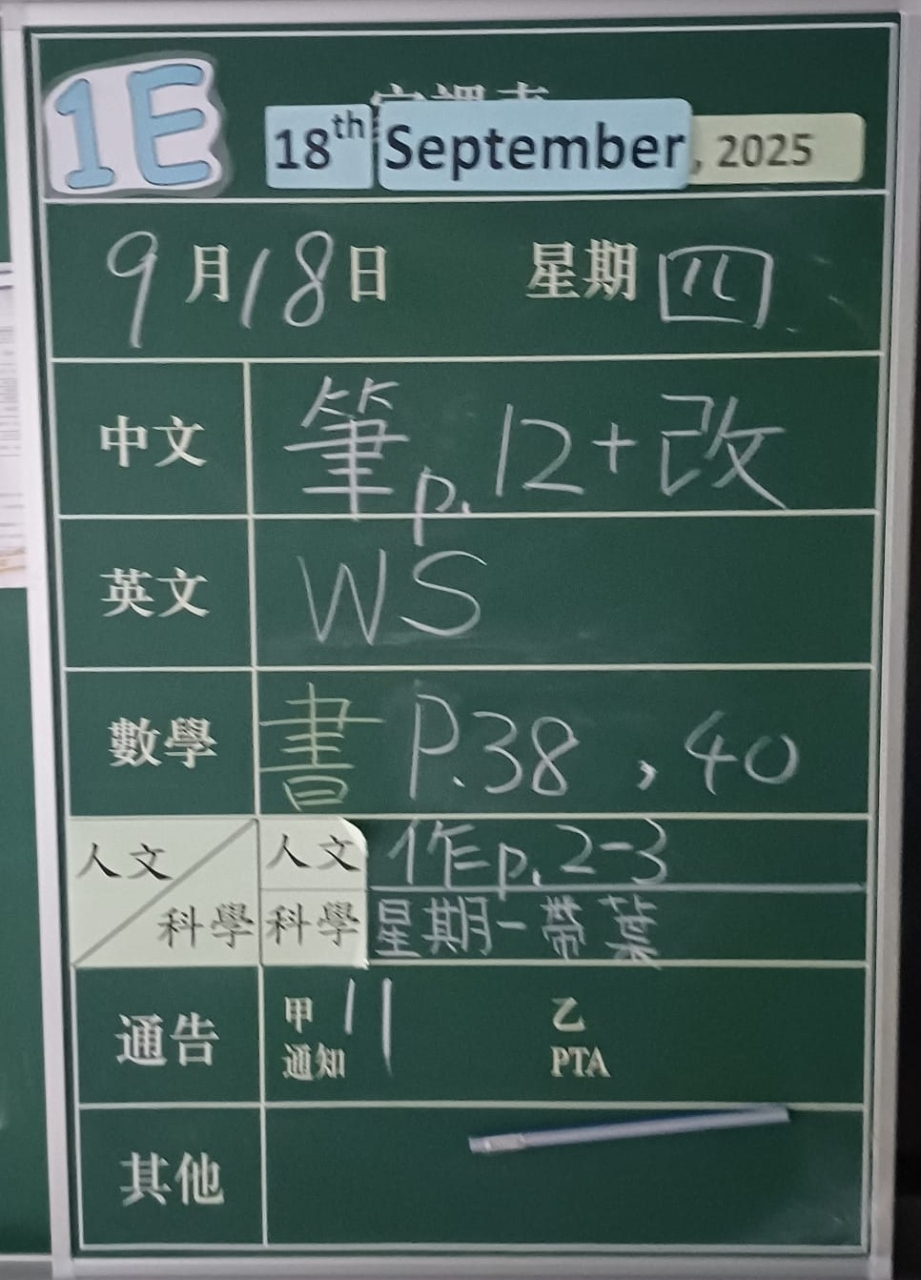 1E
18th September, 2025
9月18日 星期四
中文 筆p.12+改
英文 WS
數學 書 P.38,40
人文 人文 作p.2-3
科學 科學 星期一帶葉
通告 甲 11 乙
通知 PTA
其他